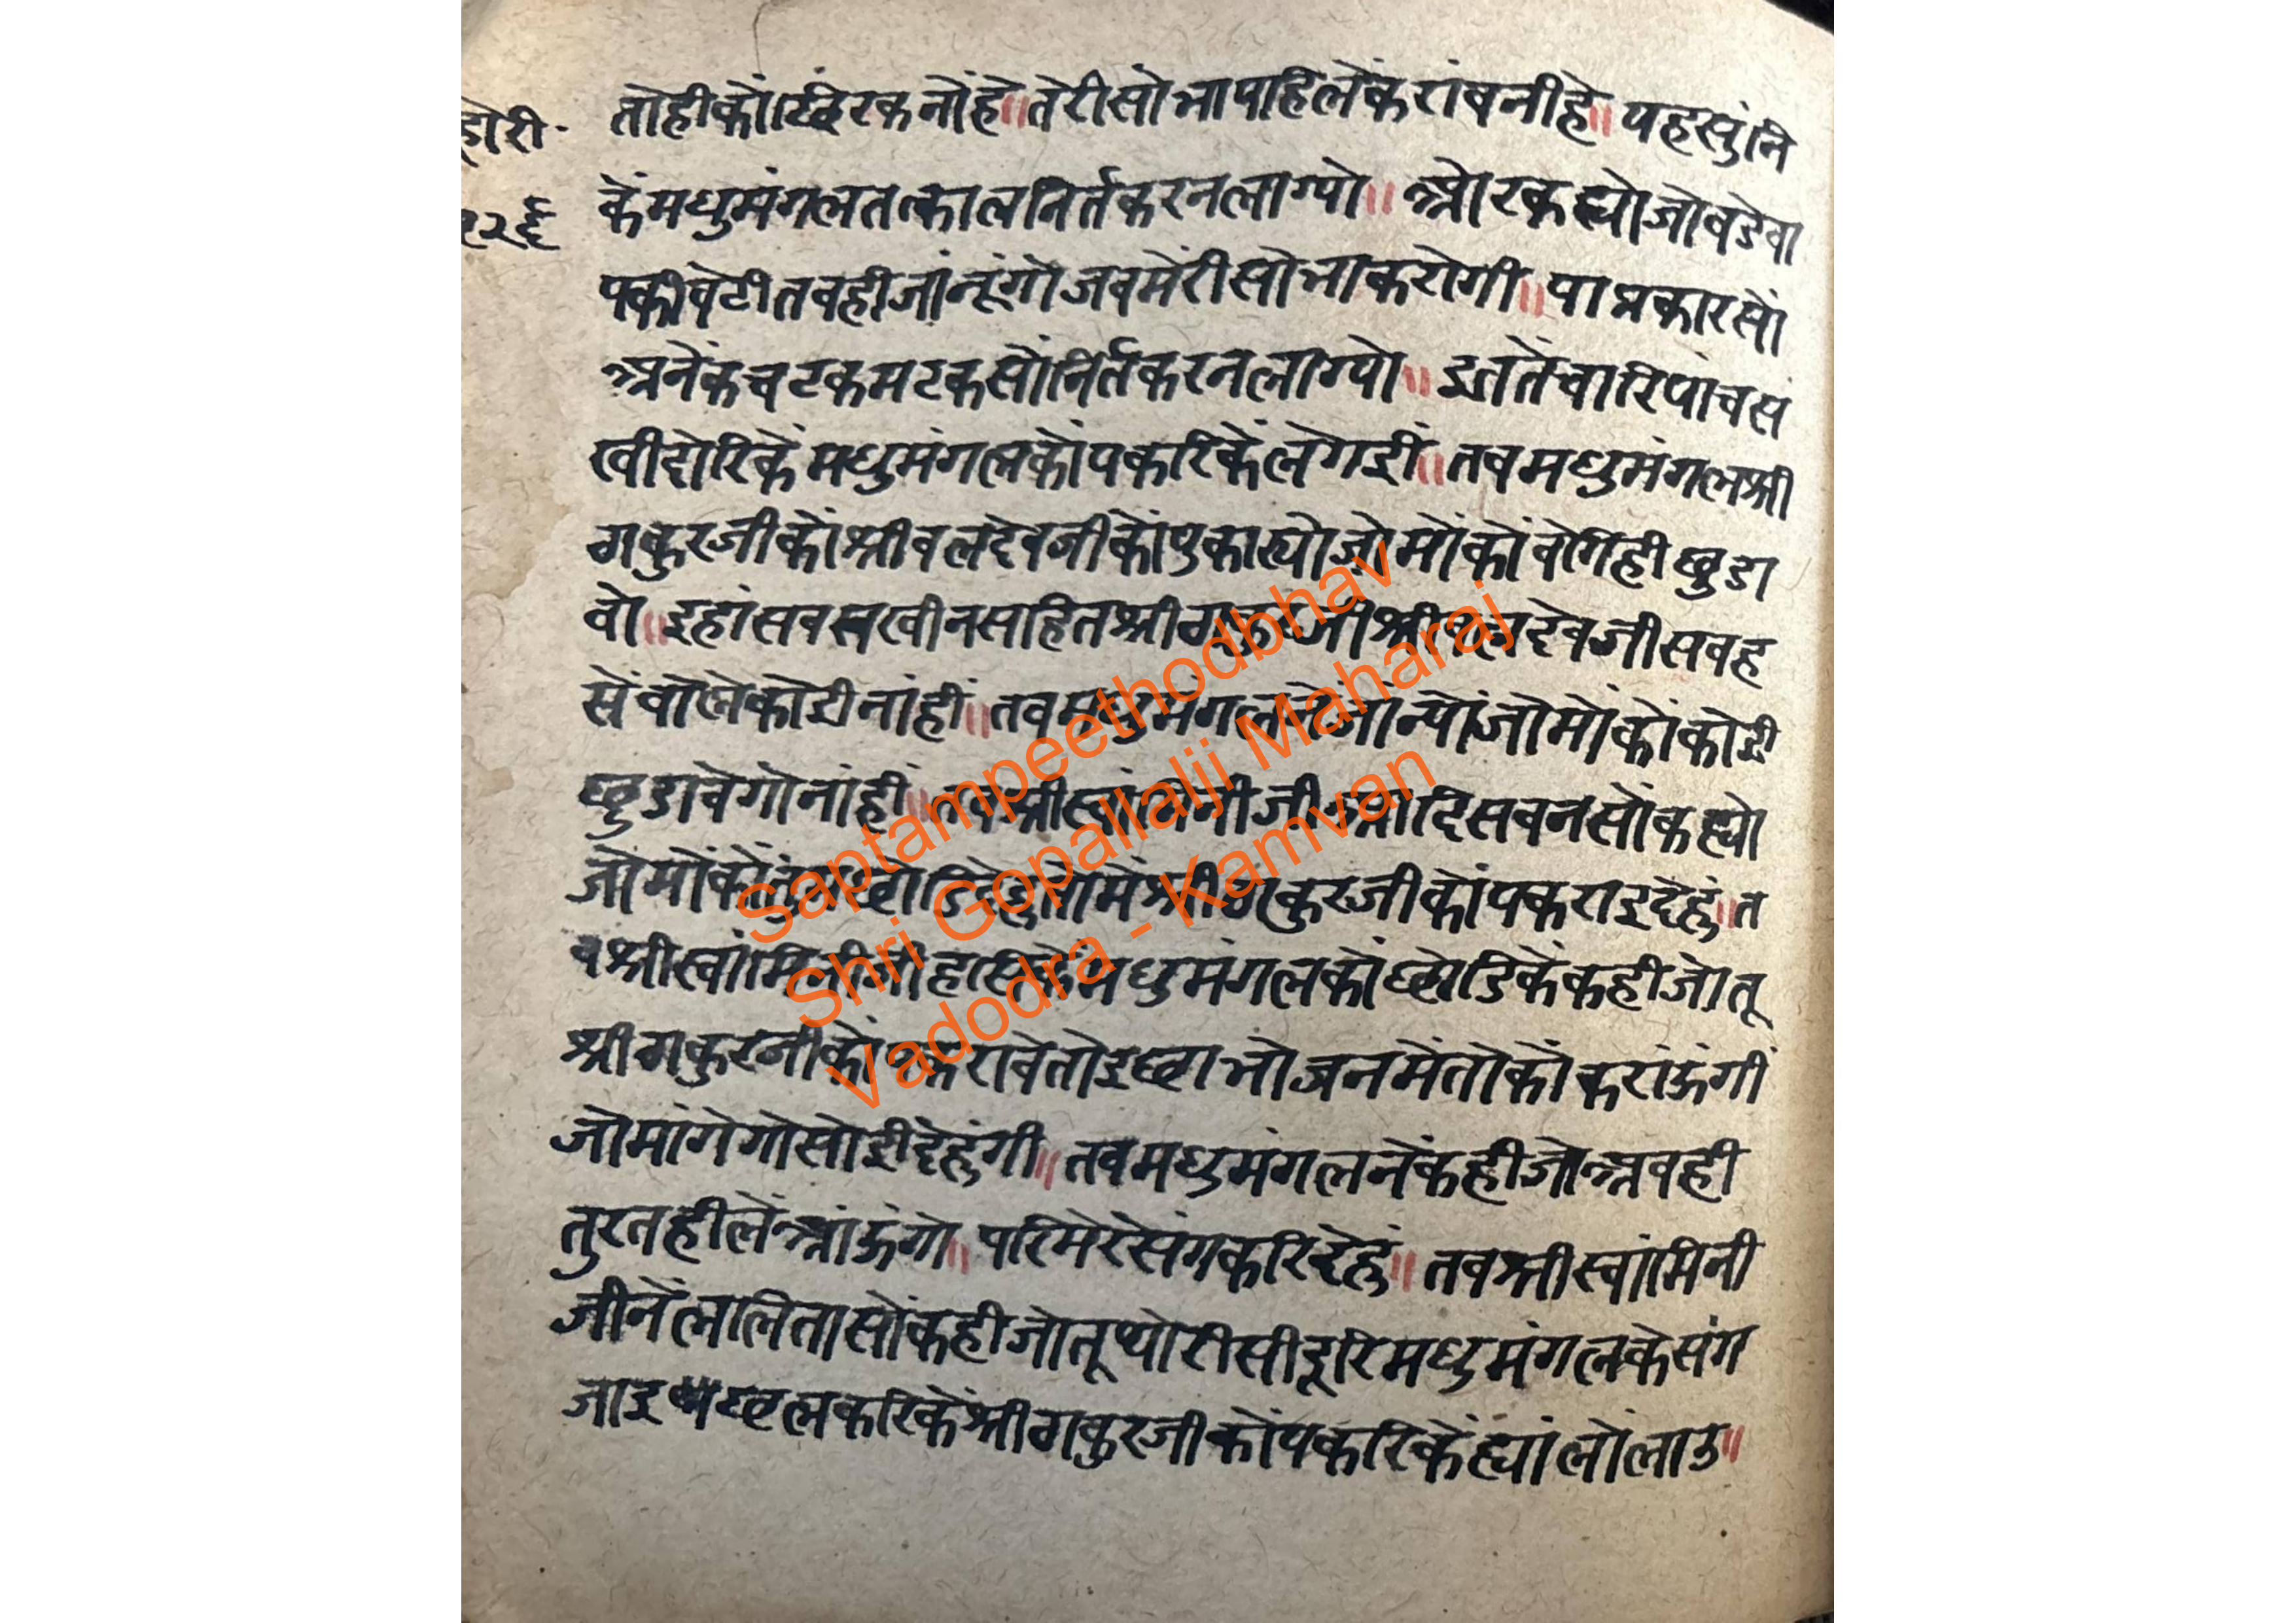 होरी
१२६
तोहीकों छिरकनों हे॥ तेरी सोभा पहिलें करांवनी हे॥ यह सुंनि
कें मधुमंगल तत्काल निर्त करन लाग्यो॥ ओर कह्यो जो बडे बा
पकी बेटी तबही जांनूंगो जब मेरी सोभा करोगी॥ या प्रकार सों
अनेक चटक मटक सों निर्त करन लाग्यो॥ इततें चारि पांच स
खी दोरिकें मधुमंगल कों पकरिकें ले गई॥ तब मधुमंगल श्री
ठाकुरजी कों श्रीबलदेवजी कों पुकार्‍यो जो मोंकों बेगिही छुडा
वो॥ इहां सब सखीन सहित श्रीठाकुरजी श्रीबलदेवजी सब ह
सें बोले कोई नांहीं॥ तब मधुमंगलनें जान्यो जो मोंकों कोई
छुडावेगो नांहीं॥ तब श्रीस्वांमिनीजी आदि सबन सों कह्यो
जो मोंकों तुम छोडि देहु तो में श्रीठाकुरजी कों पकराइ देहुं॥ त
ब श्रीस्वांमिनीजी हसिकें मधुमंगल कों छोडिकें कही जो तू
श्रीठाकुरजी कों पकरावे तो इछा भोजन में तोकों करांऊंगी
जो मांगेगो सोई देहुंगी॥ तब मधुमंगलनें कही जो अबही
तुरतही लें आंऊंगो॥ परि मेरे संग करि देहु॥ तब श्रीस्वांमिनी
जीनें ललिता सों कही जो तू थोरी सी दूरि मधुमंगल के संग
जाइ छल करिकें श्रीठाकुरजी कों पकरिकें ह्यां लों लाउ॥
Saptampeethodbhav
Shri Gopallalji Maharaj
Vadodra - Kamvan